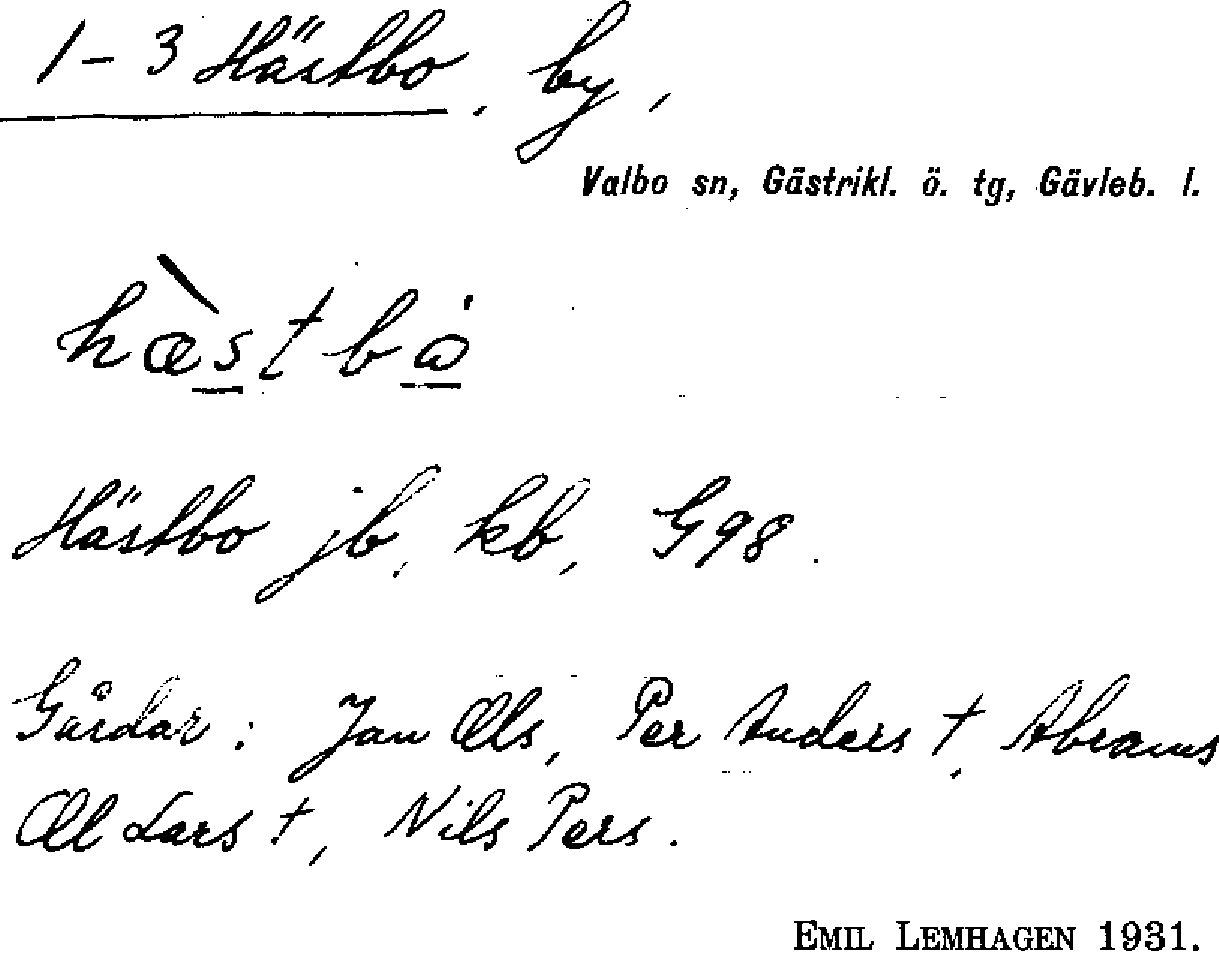 1-3 Hästbo, by,
Valbo sn, Gästrikl. ö. tg, Gävleb. l.
hæ̀stbå
Hästbo jb, kb, G98.
Gårdar: Jan Ols, Per Anders †, Abrams
Oll Lars †, Nils Pers.
EMIL LEMHAGEN 1931.